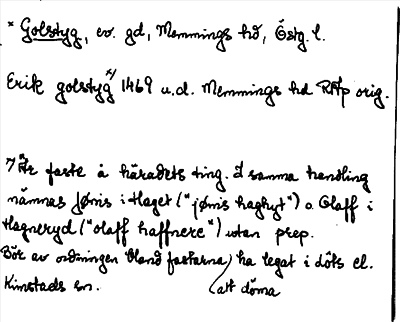 * Golstyg, ev. gd, Memmings hd, Östg. l.
Erik golstyg *) 1469 u.d. Memmings hd RAp orig.
*) Är faste å häradets ting. I samma handling
nämnas Jønis i Haget ("jønis haghyt") o. Olaff i
Hagneryd ("olaff haffnere") utan prep.
Bör av ordningen bland fastarna ha legat i Löts el.
Kimstads sn. att döma